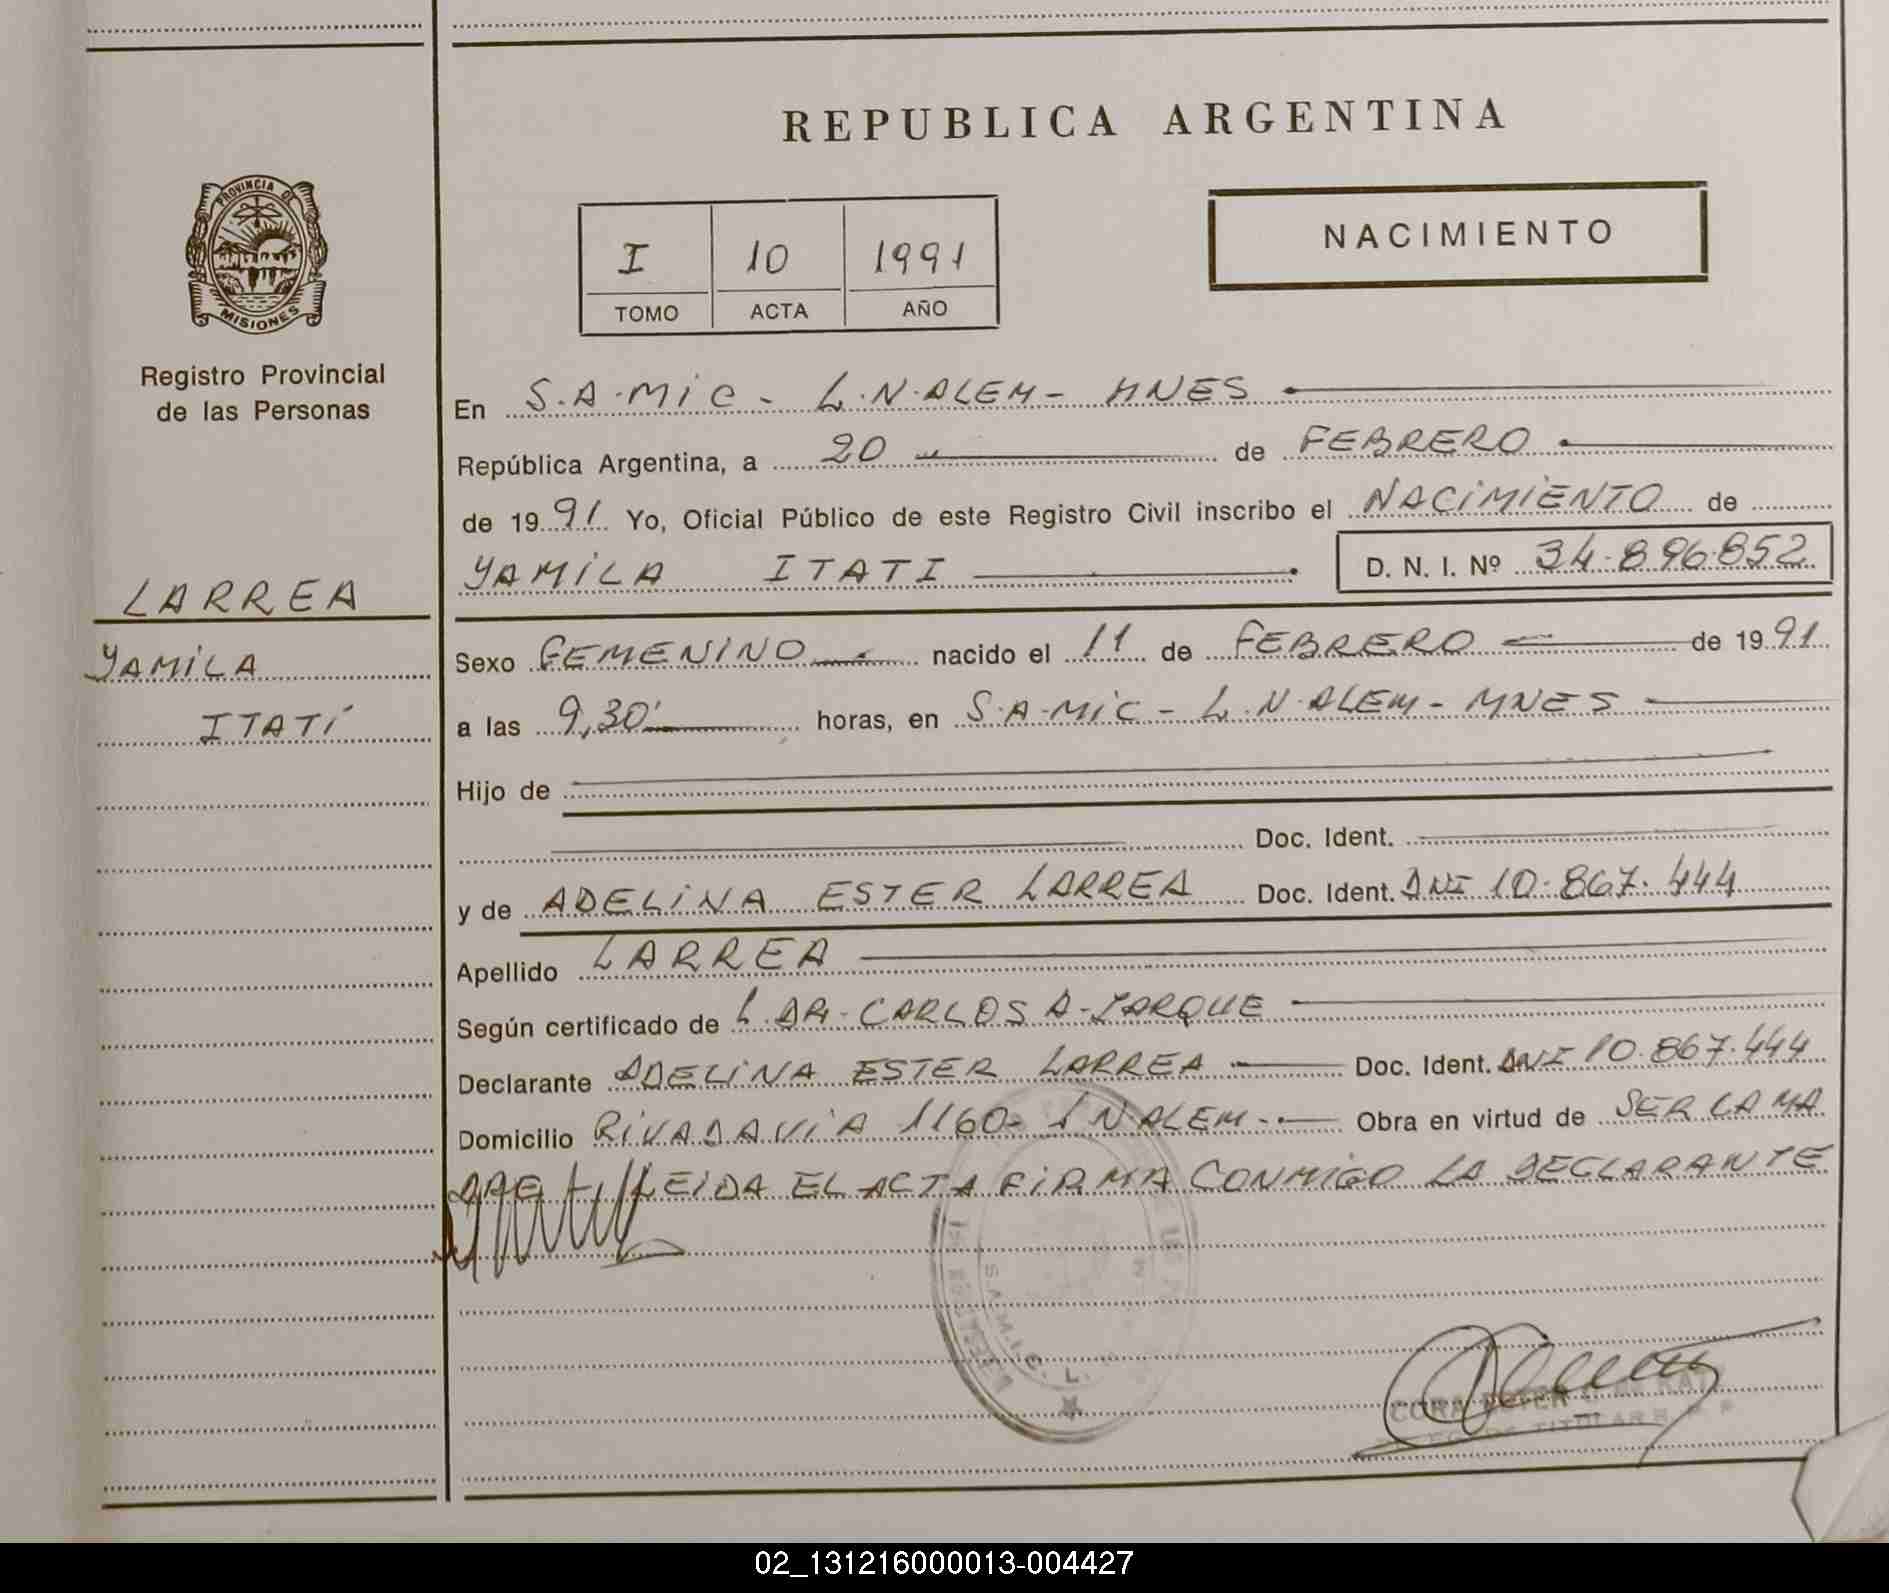 REPUBLICA ARGENTINA
NACIMIENTO
I 10 1991
TOMO ACTA AÑO
PROVINCIA DE
MISIONES
Registro Provincial
de las Personas
LARREA
YAMILA
ITATÍ
En S.A.MIC - L.N.ALEM - MNES
República Argentina, a 20 de FEBRERO
de 1991 Yo, Oficial Público de este Registro Civil inscribo el NACIMIENTO de
YAMILA ITATI D. N. I. Nº 34.896.852
Sexo FEMENINO nacido el 11 de FEBRERO de 1991
a las 9,30' horas, en S.A.MIC - L.N.ALEM - MNES
Hijo de
Doc. Ident.
y de ADELINA ESTER LARREA Doc. Ident. DNI 10.867.444
Apellido LARREA
Según certificado de CARLOS A.
Declarante ADELINA ESTER LARREA Doc. Ident. DNI 10.867.444
Domicilio RIVADAVIA 1160 - L N ALEM - Obra en virtud de SER LA MA
DRE LEIDA EL ACTA FIRMA CONMIGO LA DECLARANTE
S.A.M.I.C. L.
CORA
TITULAR
02_131216000013-004427